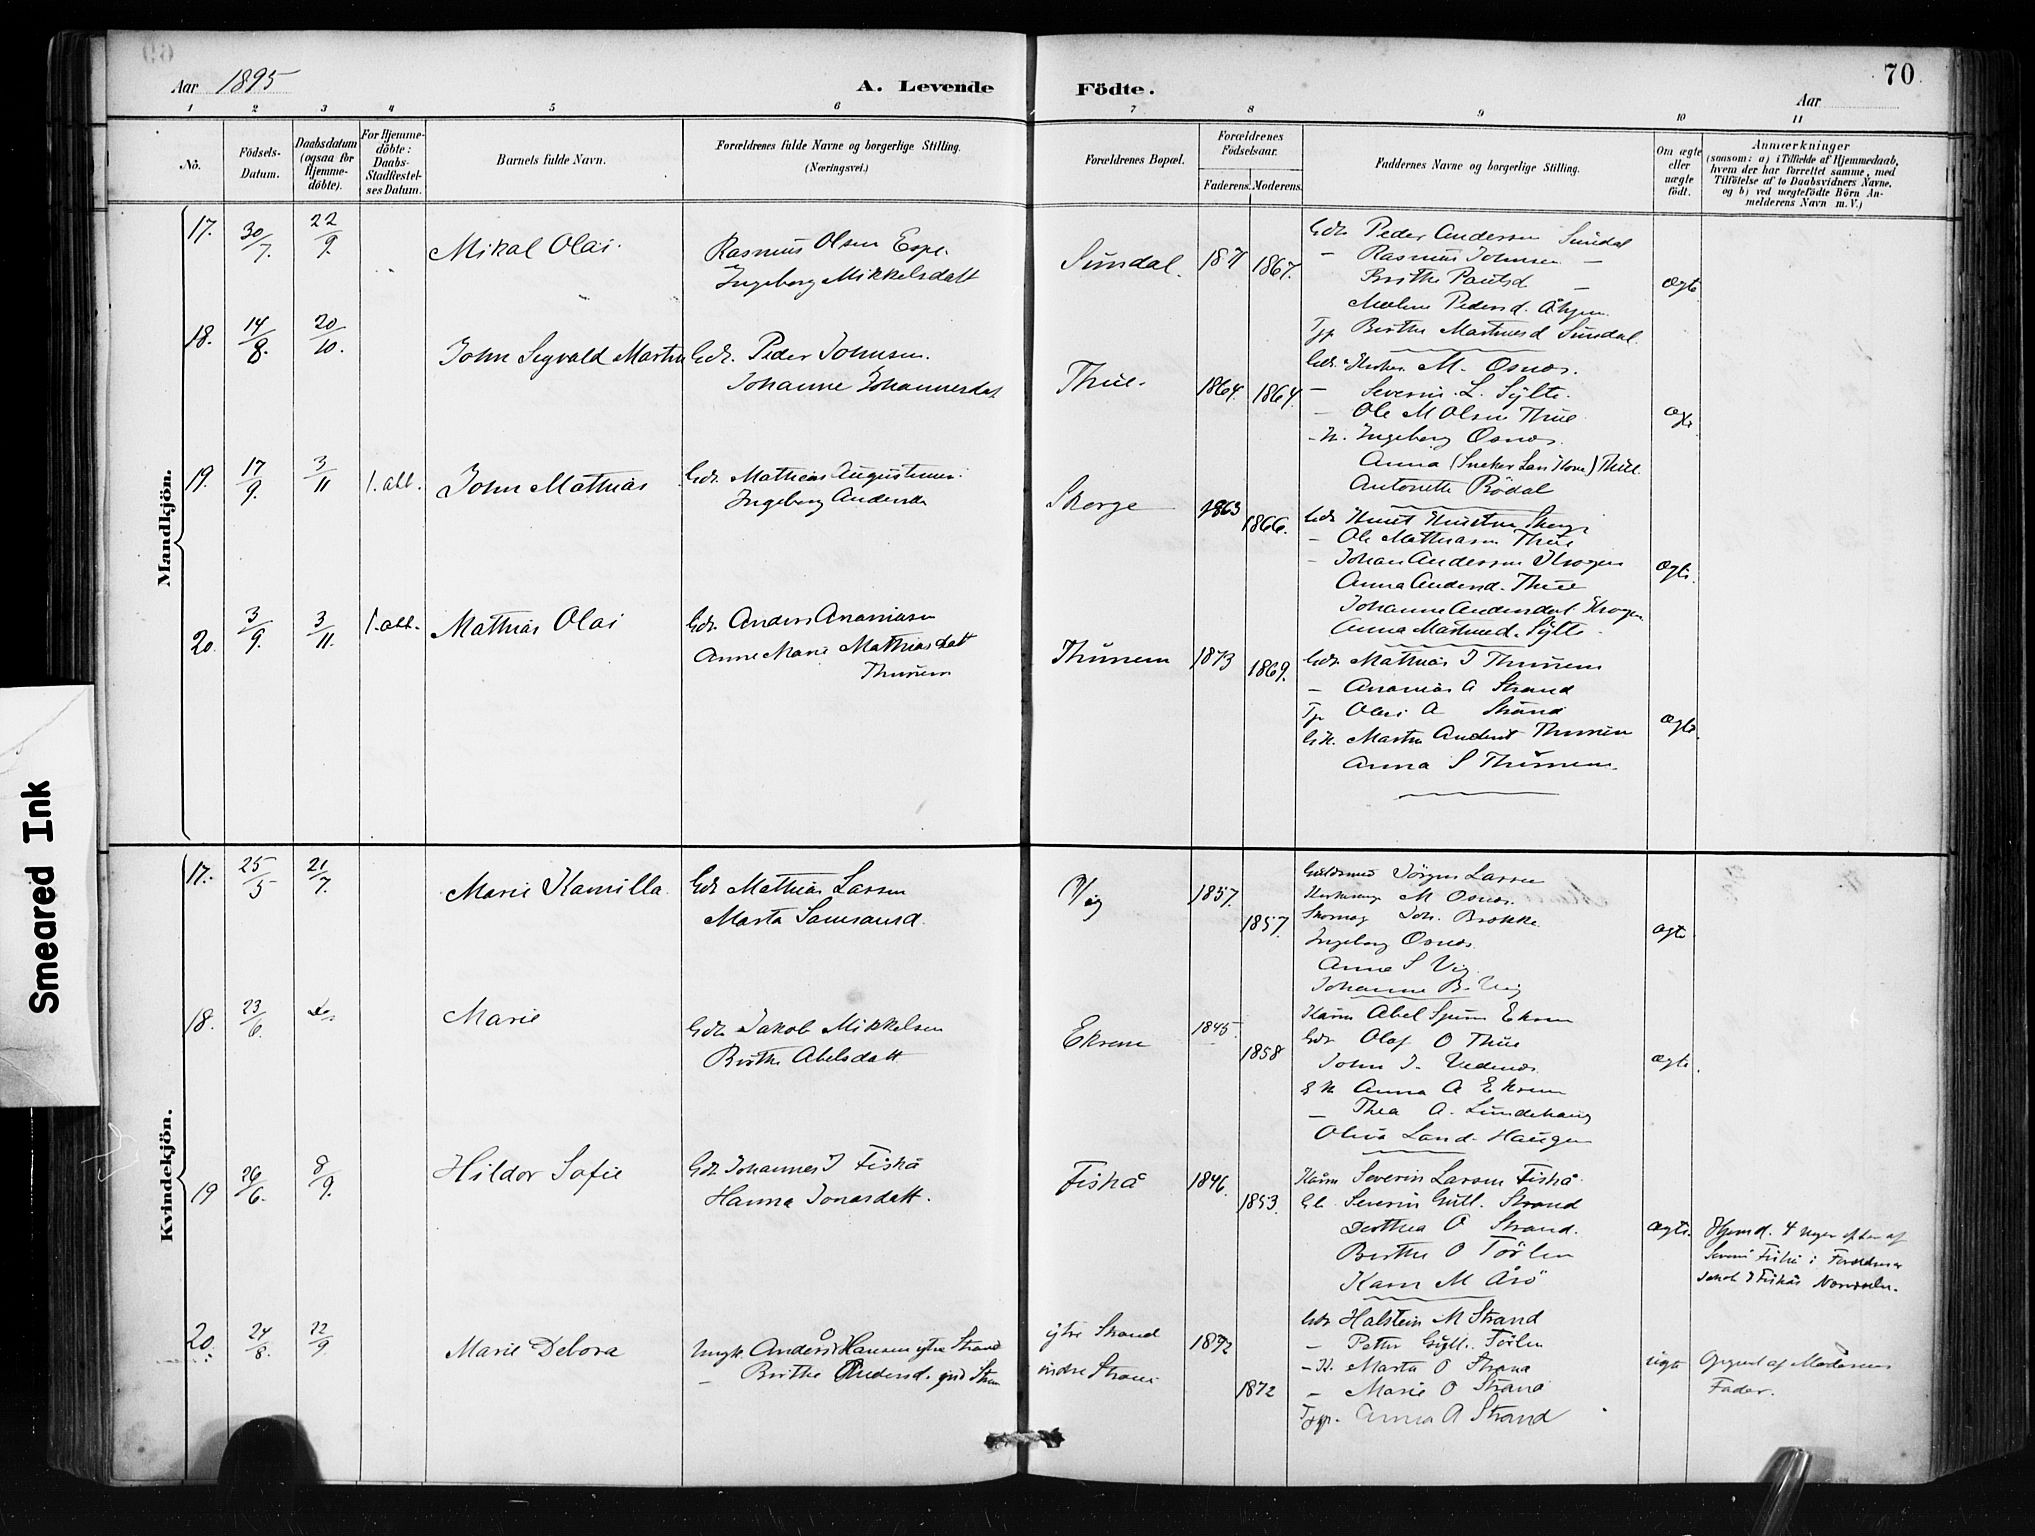 70
Aar 1895
A. Levende Födte.
Aar
1 2 3 4 5 6 7 8 9 10 11
No.
Födsels-Datum.
Daabsdatum (ogsaa for Hjemme-döbte).
For Hjemme-döbte: Daabs-Stadfæstel-ses Datum.
Barnets fulde Navn.
Forældrenes fulde Navne og borgerlige Stilling. (Næringsvei.)
Forældrenes Bopæl.
Forældrenes Födselsaar.
Faderens. Moderens.
Faddernes Navne og borgerlige Stilling.
Om ægte eller uægte födt.
Anmærkninger
(saasom: a) i Tilfælde af Hjemmedaab, hvem der har forrettet samme, med Tilföielse af to Daabsvidners Navne, og b) ved uægtefödte Börn An-melderens Navn m. V.)
Mandkjön.
17. 30/7. 22/9. Mikal Olai. Rasmus Olsen Espe.
Ingeborg Mikkelsdatt
Sundal. 1871 1867.
Gdr. Peder Andersen Sundal
- Rasmus Johnsen -
Brithe Paulsd -
Malene Pedersd.
Tjp Birthe Martinusd Sundal.
Ægte
18. 14/8. 20/10. John Sigvald Martin Gdr. Peder Johnsen.
Johanne Johannesdat
Thue. 1864. 1864.
Gdr. M. Osnæs.
- Severin L. Sylte.
- Ole M Olsen Thue
- K. Ingeborg Osnæs.
Anna (Sneker Lars Kone) Thue.
Antonette Rödal
Ægte
19. 17/9. 3/11 I. alb. John Mathias Gdr. Mathias Augustinus.
Ingeborg Andersd
Skorge 1863 1866.
Gdr Knut Knutsen Skorge
- Ole Mathiasen Thue
- Johan Andersen Krogen
Anna Andersd. Thue
Johanne Andersdat Krogen
Anna Martinusd. Sylte.
Ægte.
20. 3/9. 3/11. I. alb. Mathias Olai Gdr. Anders Ananiasen
Anne Marie Mathiasdatt
Thunem
Thunem 1873 1869.
Gdr. Mathias J Thunem
- Ananias A Strand
Tjp Olai A Strand
G.K. Marthe Anders Thunem
Anna S Thunem.
Ægte.
Kvindekjön.
17. 25/5 21/7. Marie Kamilla. Gdr Mathias Larsen
Marta Samsonsd.
Vig 1857. 1857.
Guldsmed Jörgen Larsen
M Osnæs.
Skomag Joh. Brokke.
Ingeborg Osnæs.
Anne S Vig.
Johanne B. Vig
Ægte
18. 23/6. Do. Marie Gdr. Jakob Mikkelsen
Birthe Abelsdatt
Ekrem 1845. 1858
Kårm Abel Ekrem
Gdr Olaf O Thue
John J. Vedenæs.
G K Anna A Ekrem
- Thea A. Lundehaug
Oliva Haugen
Ægte.
19 26/6. 8/9. Hildor Sofie Gdr. Johannes J Fiskå
Hanna Jonasdatt.
Fiskå 1846. 1853.
Kårm Severin Larsen Fiskå.
Severin Gull. Strand
Dorthea O Strand.
Birthe O Törlen
Karn M Årö
Ægte. Hjemd. 4 uger efter af
Severin Fiskå i Forældrene
Jakob J Fiskås Nærværelse.
20. 24/8. 22/9 Marie Debora Ungk. Anders Hansen ytre Strand
- Birthe Andersd. ind Stran
ytre Strand
indre Strand
1872 1872
Gdr Halstein M Strand
- Petter Gull. Törlen
- K. Marta O Strand
- Marie O Strand
Tjp. Anna A Strand
Uægte Opgivet af Moderens
Fader.
Smeared Ink